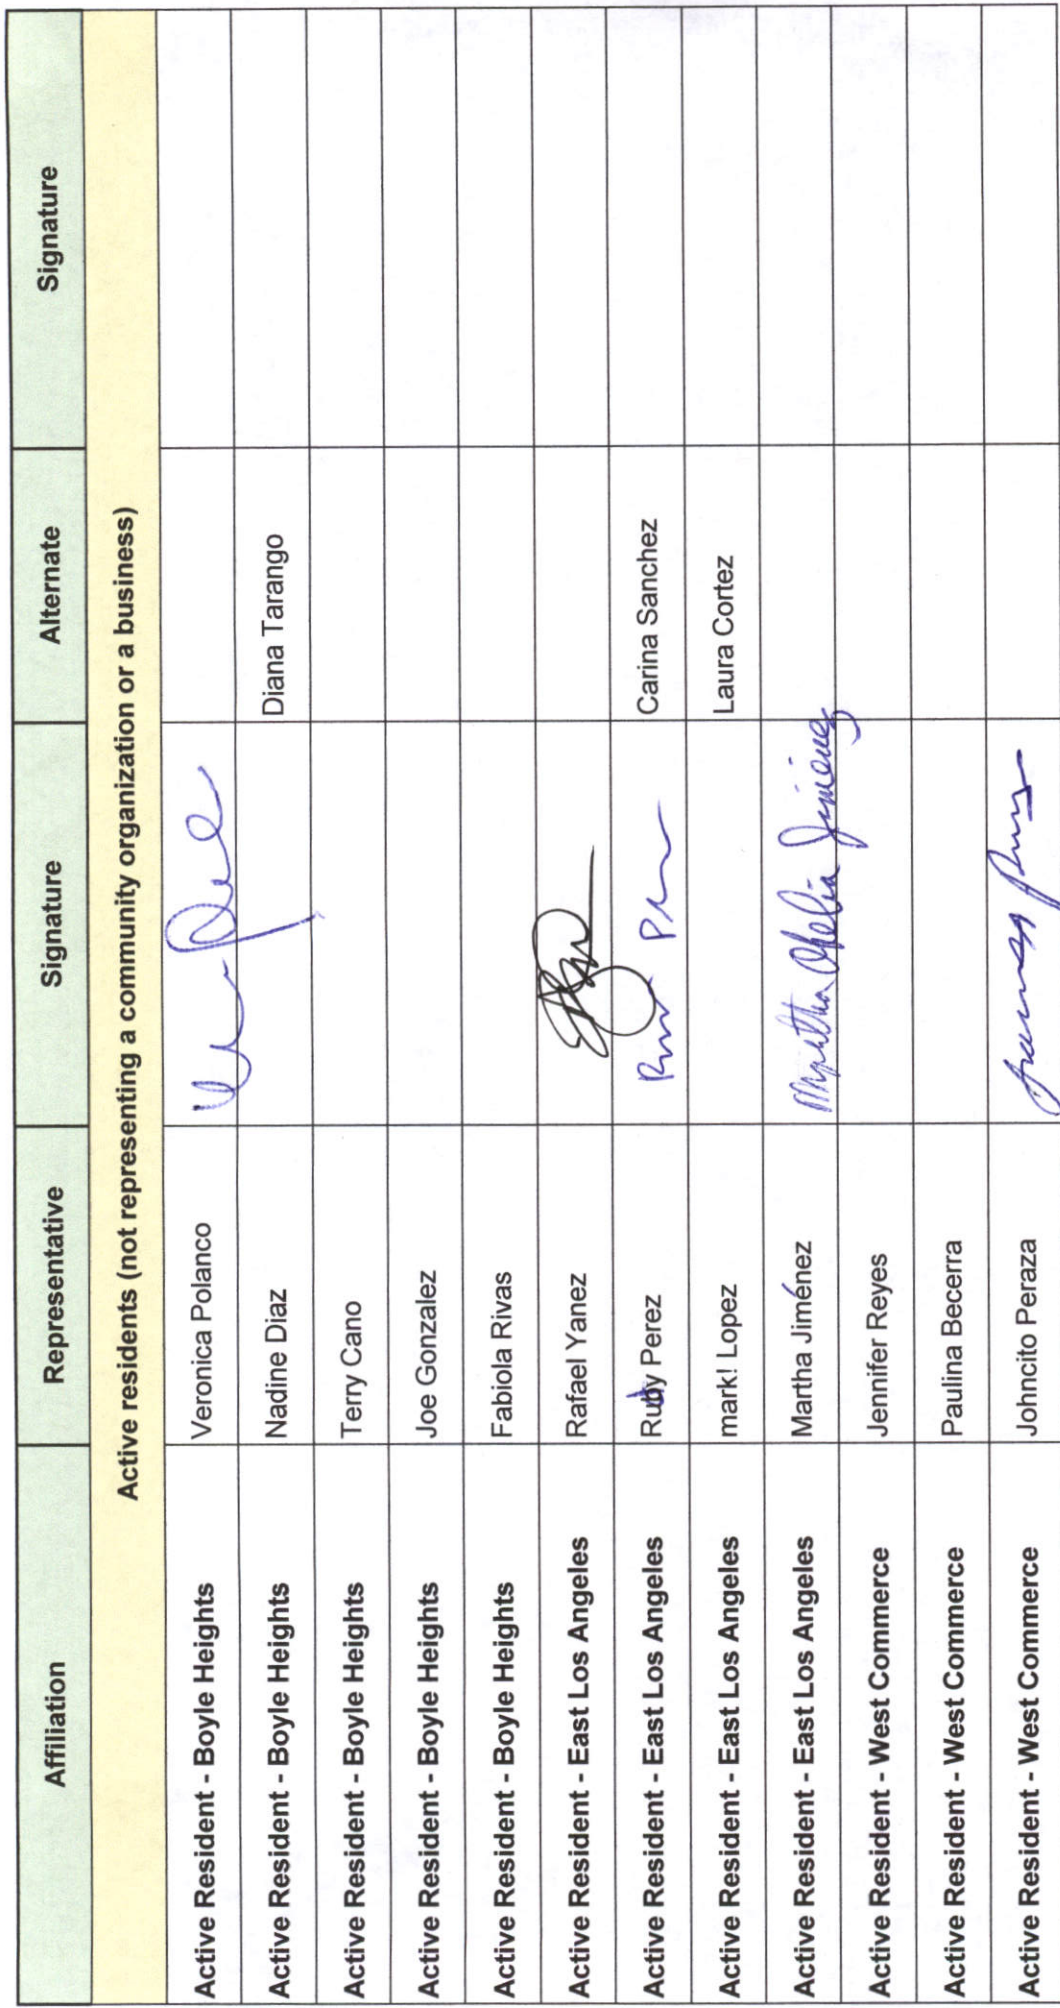 Affiliation Representative Signature Alternate Signature
Active residents (not representing a community organization or a business)
Active Resident - Boyle Heights Veronica Polanco
Active Resident - Boyle Heights Nadine Diaz Diana Tarango
Active Resident - Boyle Heights Terry Cano
Active Resident - Boyle Heights Joe Gonzalez
Active Resident - Boyle Heights Fabiola Rivas
Active Resident - East Los Angeles Rafael Yanez
Active Resident - East Los Angeles Ruby Perez Carina Sanchez
Active Resident - East Los Angeles mark! Lopez Laura Cortez
Active Resident - East Los Angeles Martha Jiménez Martha Ofelia Jiménez
Active Resident - West Commerce Jennifer Reyes
Active Resident - West Commerce Paulina Becerra
Active Resident - West Commerce Johncito Peraza